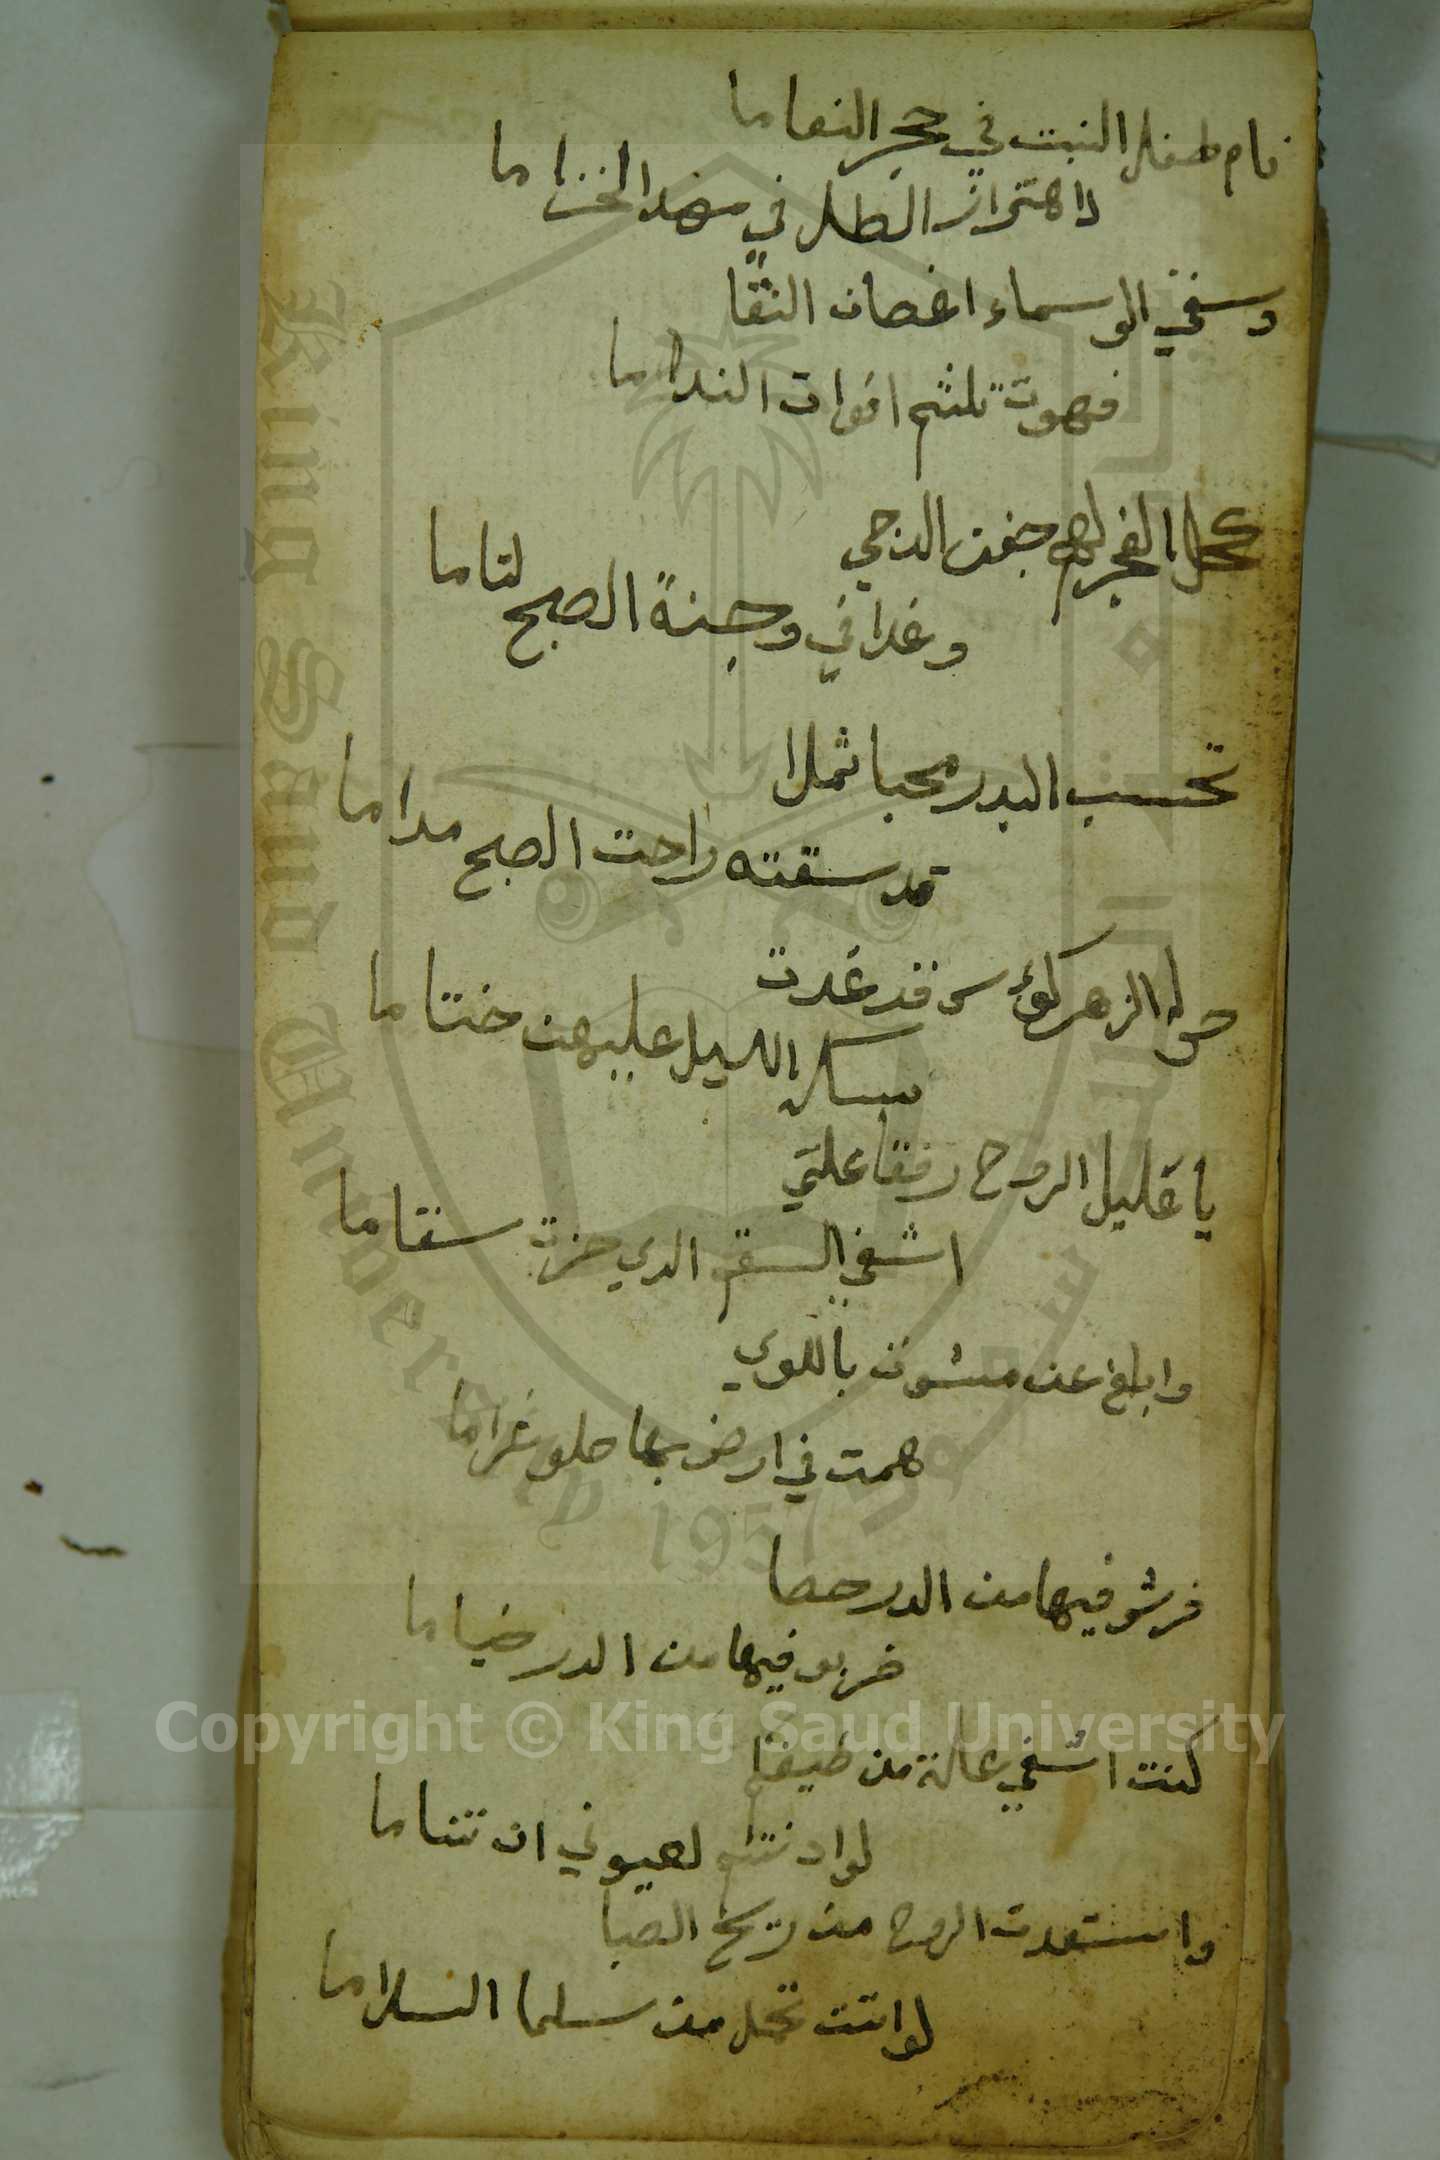 نام طفل النبت في حجر النعاما
لاهتزاز الطل في مهد الخزاما
وسقي الوسماء اغصان النقا
فهوت تلثم افوات النداما
كحل الفجر لهم جفن الدجي
وغدا في وجنة الصبح لتاما
تحسب البدر محيا ثملا
قد سقته راحت الصبح مداما
حوله الزهر كوٴس قد غدت
مسك الليل عليهن ختاما
يا عليل الروح رفقا علني
اشفي السقم الدي حزت سقاما
وابلغ عن مشوق باللوي
همت في ارض بها حلو غراما
فرشو فيها من الدر حصا
ضربو فيها من الدر خياما
كنت اشفي عالة من طيفكم
لو ادنتم لعيوني ان تناما
واستعدت الروح من ريح الصبا
لو اتت تحمل من سلما السلاما
King Saud University
1957
Copyright © King Saud University